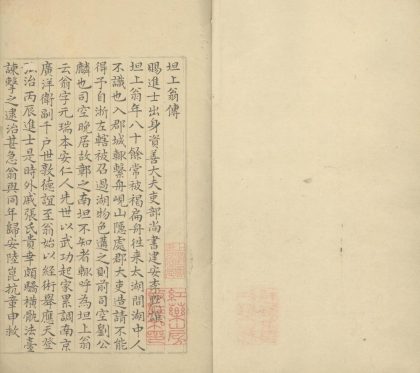 坦上翁傳
賜進士出身資善大夫吏部尚書建安李默撰
坦上翁年八十餘常被褐扁舟往來太湖間湖中人
不識也入郡城輒繫舟峴山隱處郡大吏造請不能
得予自浙左轄被召過湖物色遇之則前司空劉公
麟也司空晚居故鄣之南坦不知者輒呼為坦上翁
云翁字元瑞本安仁人先世以武功起家累調南京
廣洋衛副千戶世敦德誼至翁始以經術舉應天登
弘治丙辰進士是時外戚張氏貴幸頗驕橫骫法臺
諫擊之逮治甚急翁與同年歸安陸崑抗章申救